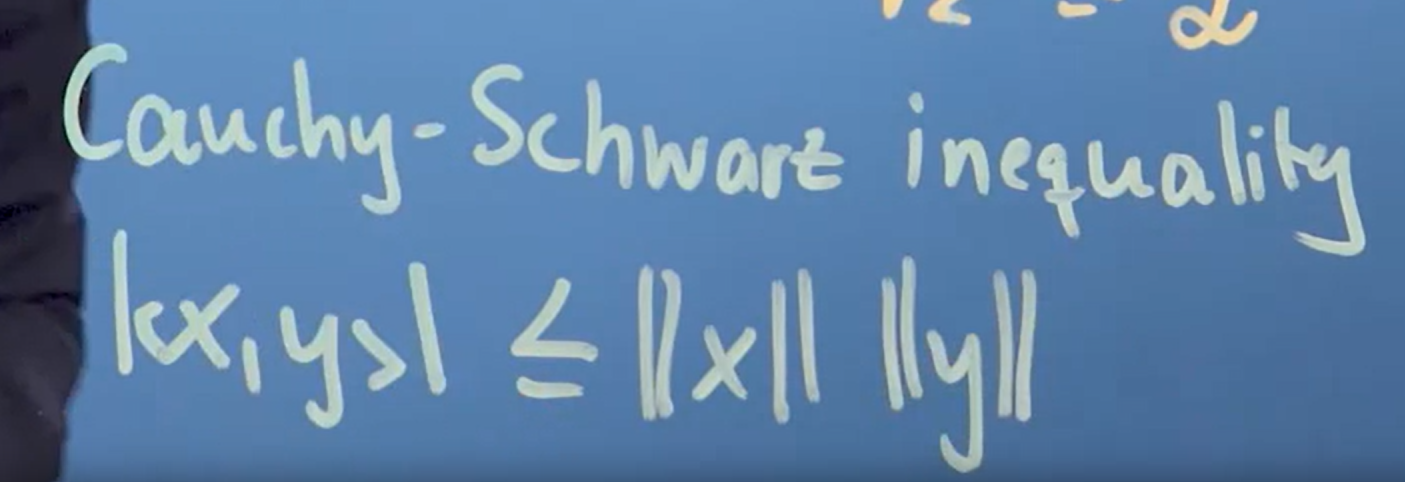 Cauchy-Schwarz inequality
|<x,y>| ≤ ||x|| ||y||